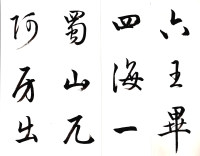 六王畢
四海一
蜀山兀
阿房出